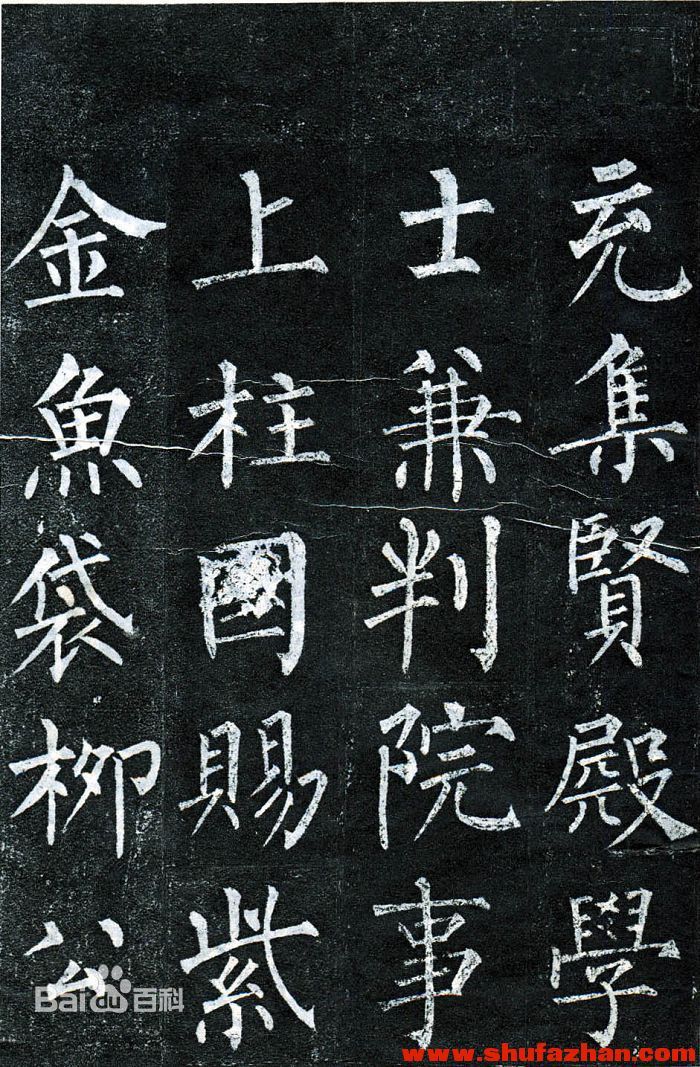 充集賢殿學
士兼判院事
上柱國賜紫
金魚袋柳公
Baidu百科
www.shufazhan.com